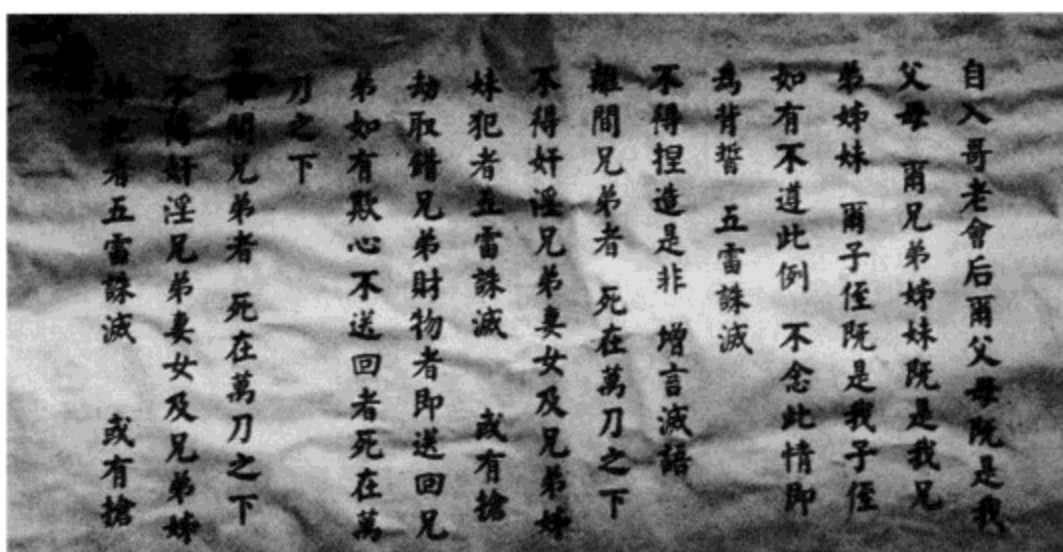 自入哥老會后爾父母既是我
父母 爾兄弟姊妹既是我兄
弟姊妹 爾子侄既是我子侄
如有不遵此例 不念此情即
為背誓 五雷誅滅
不得捏造是非 增言減語
離間兄弟者 死在萬刀之下
不得奸淫兄弟妻女及兄弟姊
妹犯者五雷誅滅 或有搶
劫取錯兄弟財物者即送回兄
弟如有欺心不送回者死在萬
刀之下
離間兄弟者 死在萬刀之下
不得奸淫兄弟妻女及兄弟姊
妹犯者五雷誅滅 或有搶